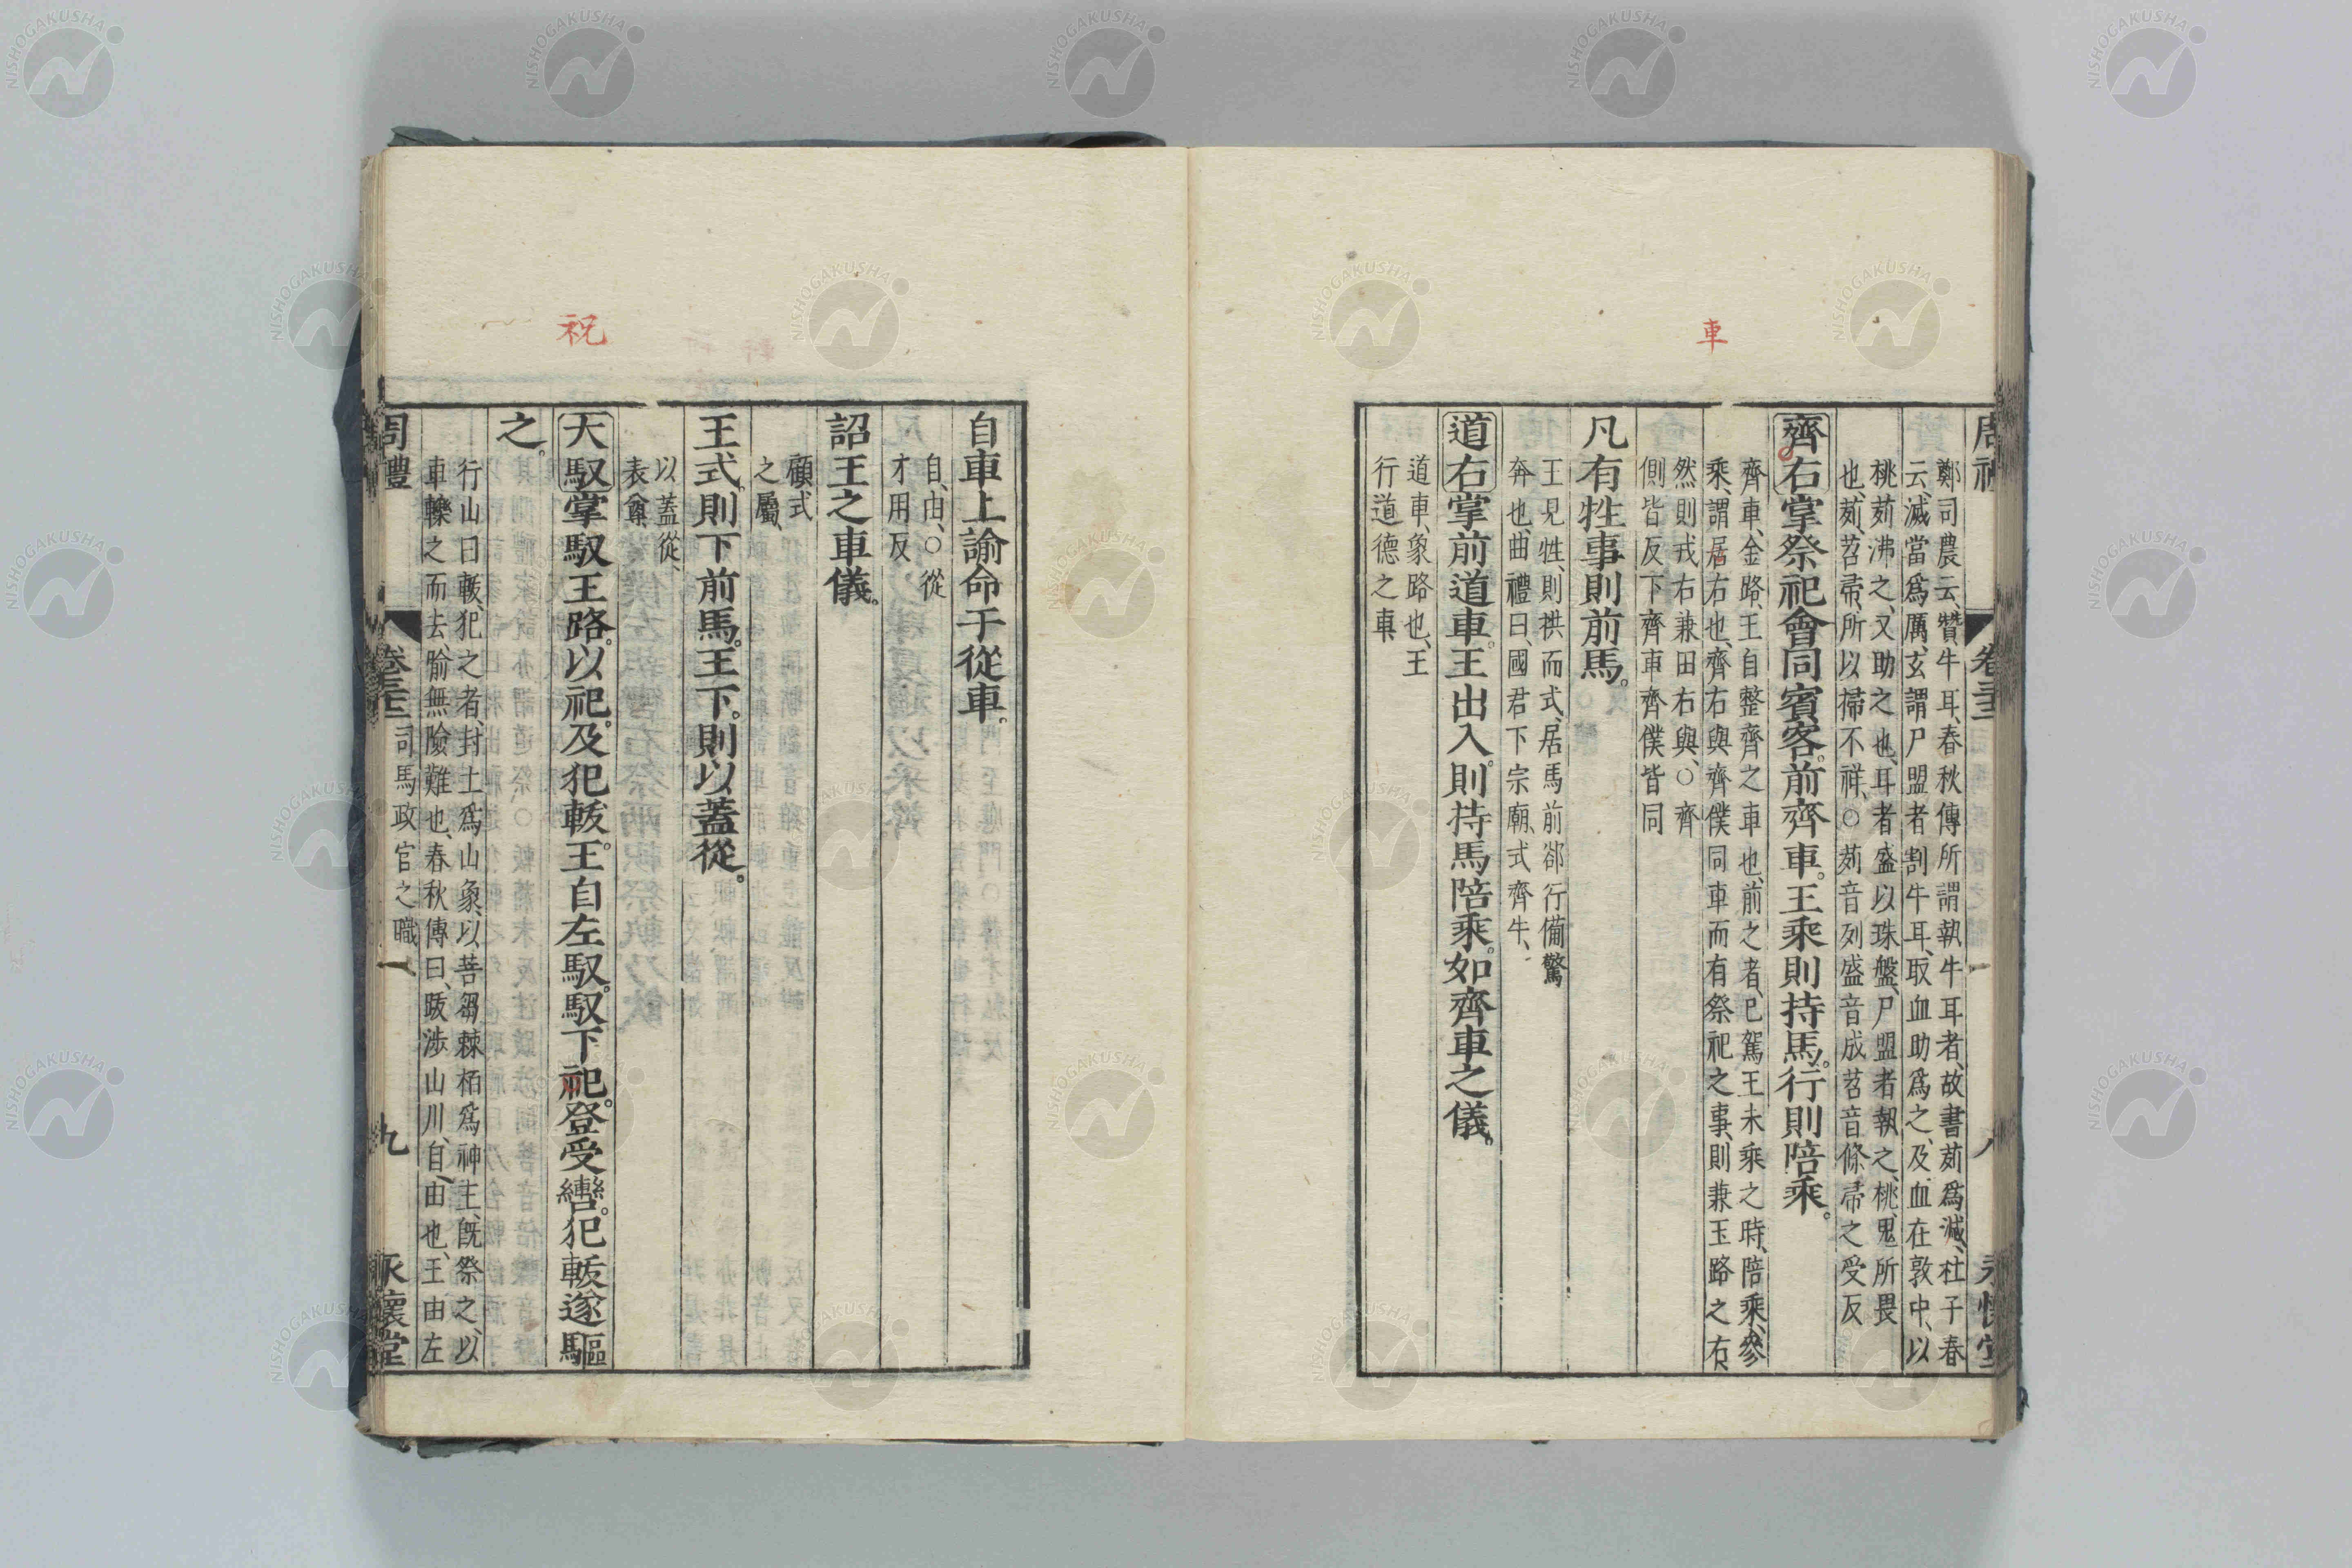 車
鄭司農云、贊牛耳、春秋傳所謂執牛耳者、故書茢爲滅、杜子春
云、滅當爲厲、玄謂尸盟者割牛耳、取血助爲之、及血在敦中、以
桃茢沸之、又助之也、耳者盛以珠盤、尸盟者執之、桃、鬼所畏
也、茢、苕帚、所以掃不祥、○茢音列盛音成苕音條帚之受反
齊右掌祭祀會同賓客。前齊車。王乘則持馬。行則陪乘。
齊車、金路、王自整齊之車也、前之者、已駕王未乘之時、陪乘、參
乘、謂居右也、齊右與齊僕同車而有祭祀之事、則兼玉路之右、
然則戎右兼田右與、○齊
側皆反下齊車齊僕皆同
凡有牲事則前馬。
王見牲、則拱而式、居馬前郤行備驚
奔也、曲禮曰、國君下宗廟、式齊牛、
道右掌前道車。王出入。則持馬陪乘。如齊車之儀。
道車、象路也、王
行道德之車
祝
自車上諭命于從車。
自、由、○從
才用反
詔王之車儀。
顧式
之屬、
王式。則下前馬。王下。則以蓋從。
以蓋從、
表尊
大馭掌馭王路。以祀。及犯軷。王自左馭。馭下祝。登受轡。犯軷遂驅
之。
行山曰軷、犯之者、封土爲山象、以菩芻棘栢爲神主、旣祭之、以
車轢之而去、喻無險難也、春秋傳曰、跋涉山川、自、由也、王由左
周禮 卷三十二 司馬政官之職 九 永懷堂